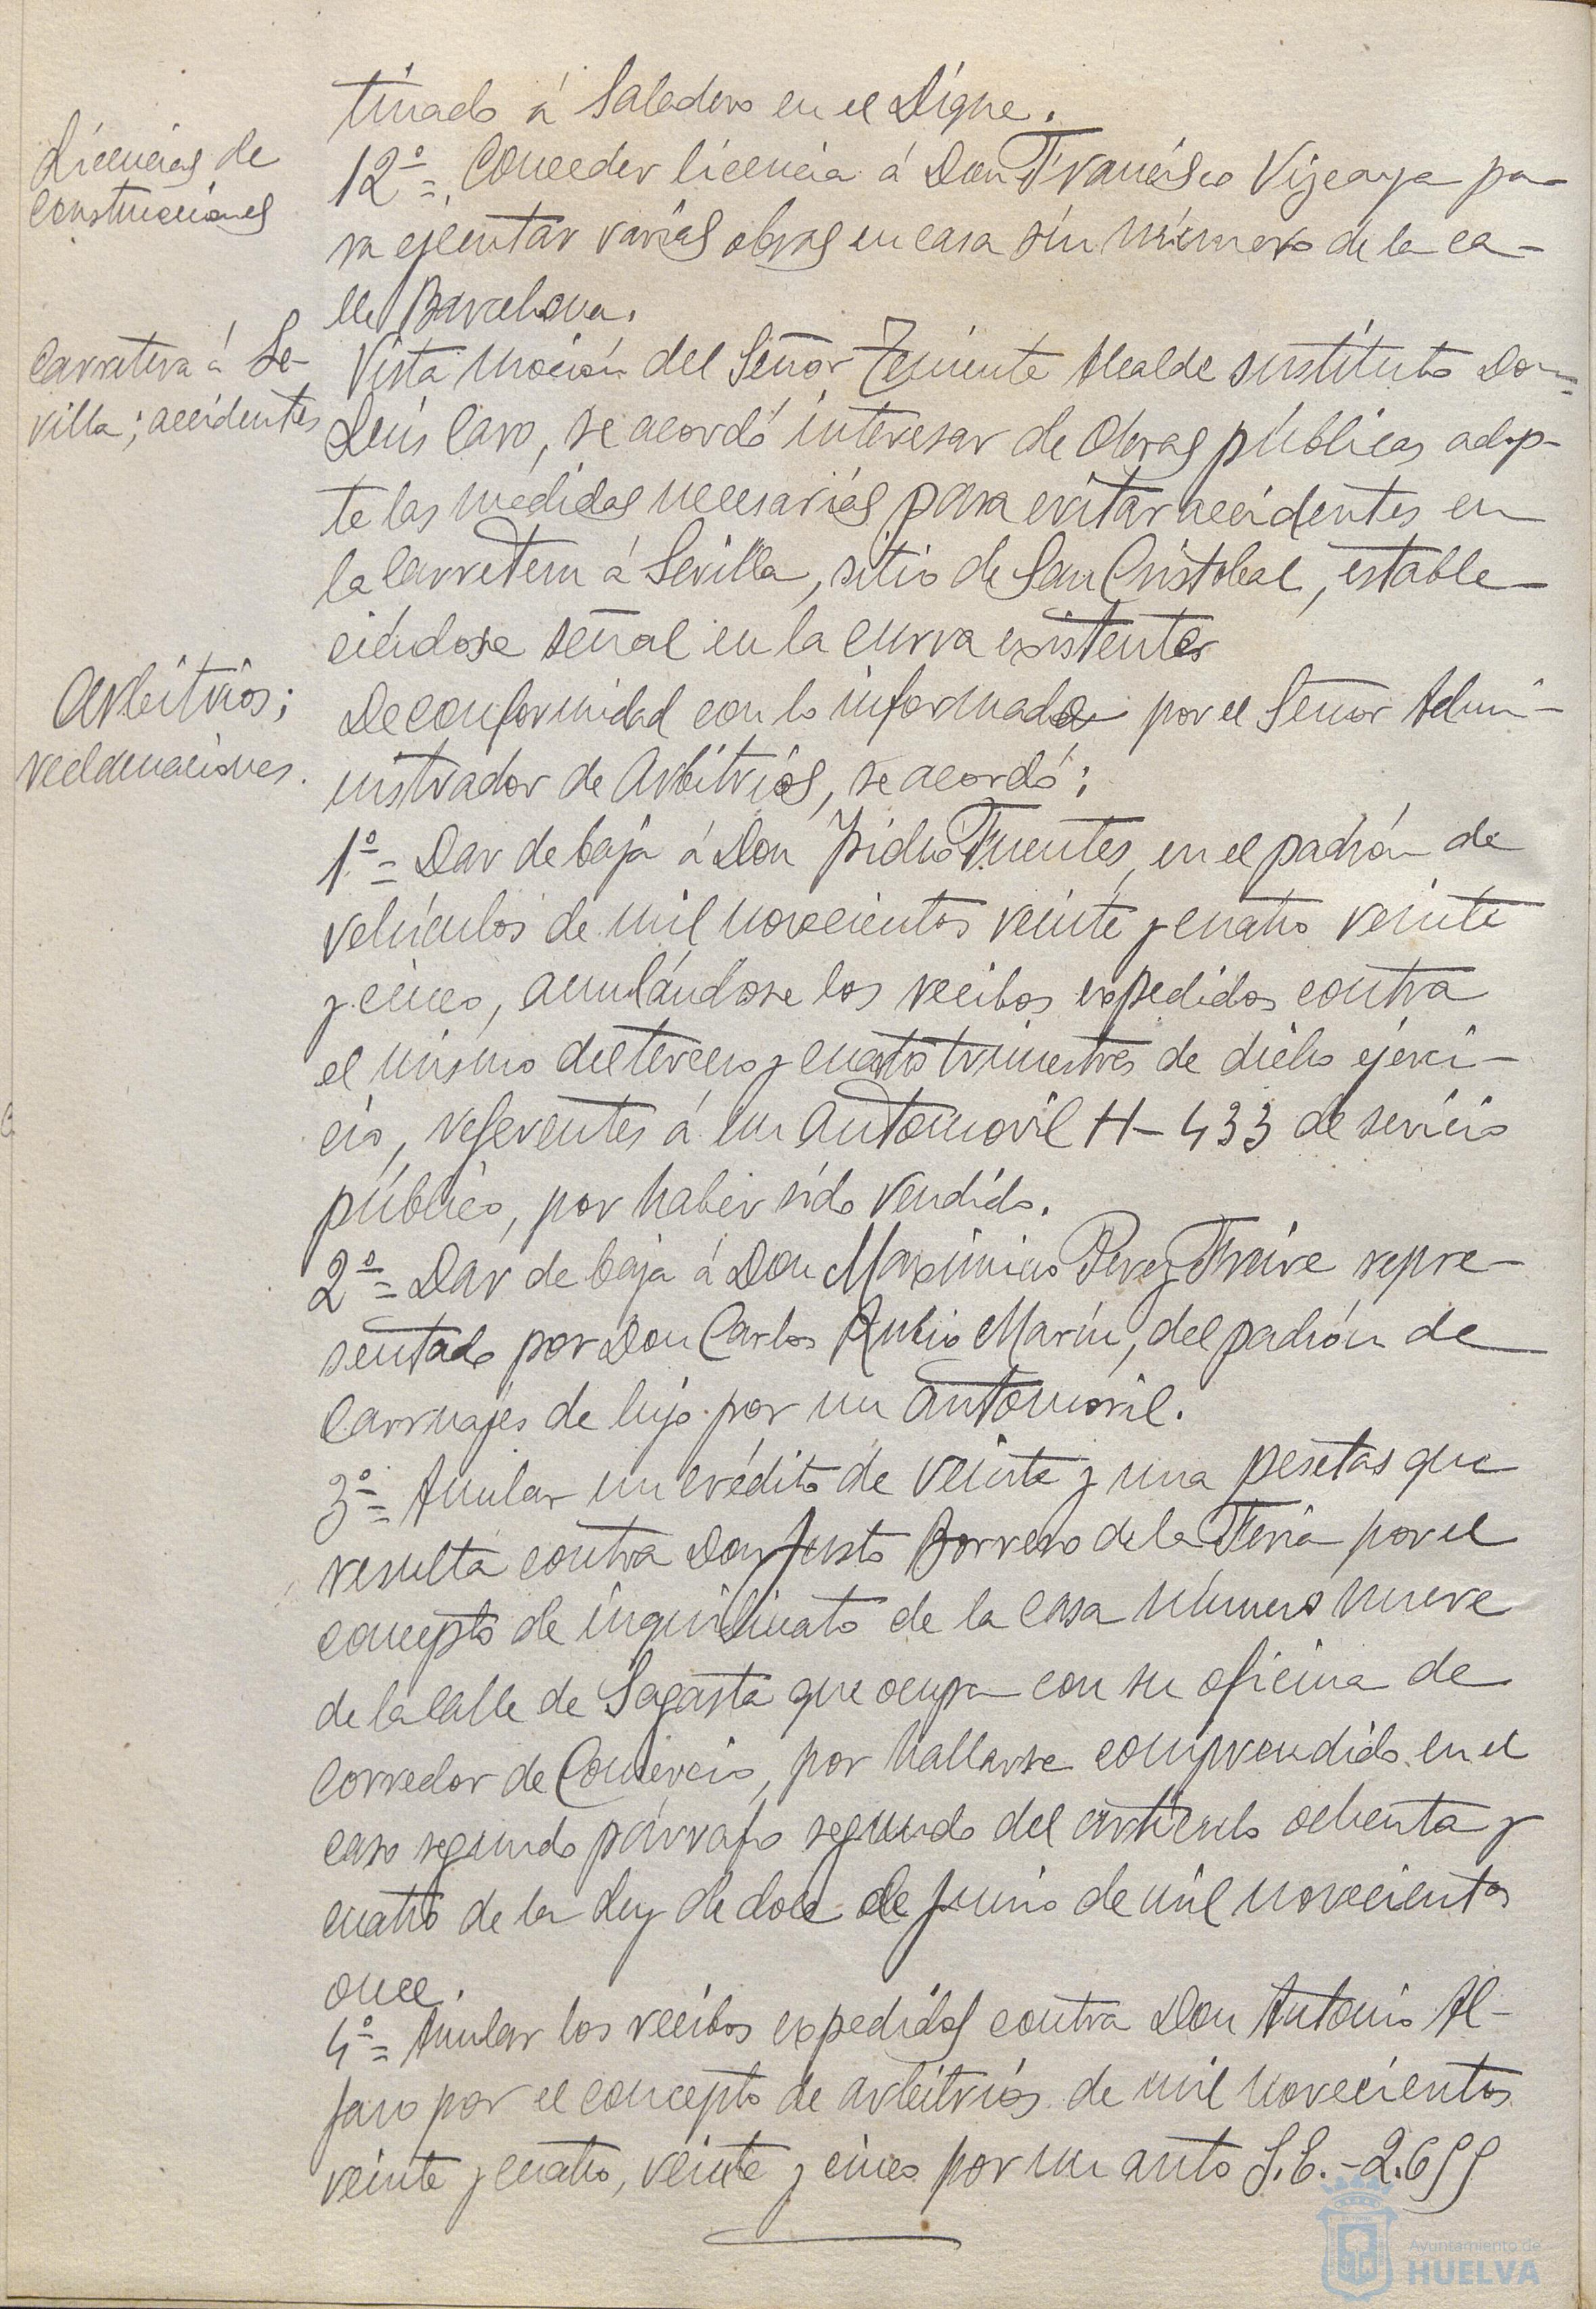 tinado á Saladero en el Dique.
Licencias de
construcciones
12º= Conceder licencia á Don Francisco Vizcaya pa-
ra ejecutar varias obras en casa sin número de la ca-
lle Barcelona.
Carretera á Se-
villa; accidentes
Vista moción del Señor Teniente Alcalde sustituto Don
Luis Caro, se acordó interesar de Obras públicas adop-
te las medidas necesarias para evitar accidentes en
la Carretera á Sevilla, sitio de San Cristobal, estable-
ciéndose señal en la curva existente
Arbitrios;
reclamaciones.
De conformidad con lo informado por el Señor Admi-
nistrador de Arbitrios, se acordó:
1º= Dar de baja á Don Isidro Fuentes, en el padrón de
vehículos de mil novecientos veinte y cuatro veinte
y cinco, anulándose los recibos expedidos contra
el mismo del tercero y cuarto trimestres de dicho ejerci-
cio, referentes á un automovil H-433 de servicio
público, por haber sido vendido.
2º= Dar de baja á Don Maximino Perez Freire repre-
sentado por Don Carlos Rubio Marín, del padrón de
Carruajes de lujo por un automóvil.
3º= Anular un crédito de veinte y una pesetas que
resulta contra Don Justo Borrero de la Feria por el
concepto de inquilinato de la casa número nueve
de la Calle de Sagasta que ocupa con su oficina de
Corredor de Comercio, por hallarse comprendido en el
caso segundo párrafo segundo del artículo ochenta y
cuatro de la Ley de doce de Junio de mil novecientos
once.
4º= Anular los recibos expedidos contra Don Antonio Al-
faro por el concepto de arbitrios de mil novecientos
veinte y cuatro, veinte y cinco por un auto S.E.-2.655
Ayuntamiento de
HUELVA